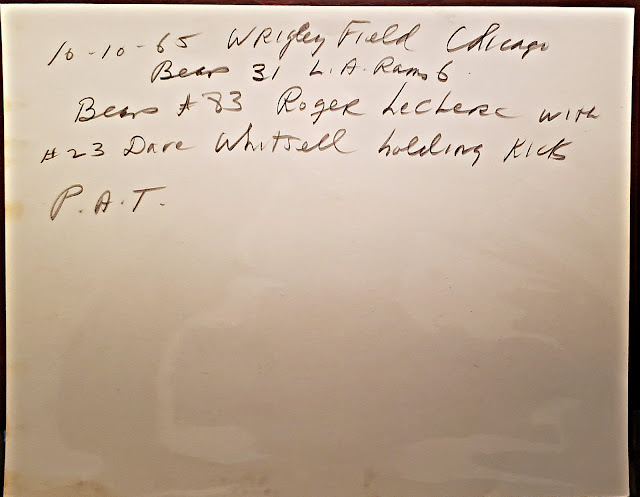 10-10-65 Wrigley Field Chicago
Bears 31 L.A. Rams 6
Bears #83 Roger Leclerc with
#23 Dave Whitsell holding Kicks
P.A.T.